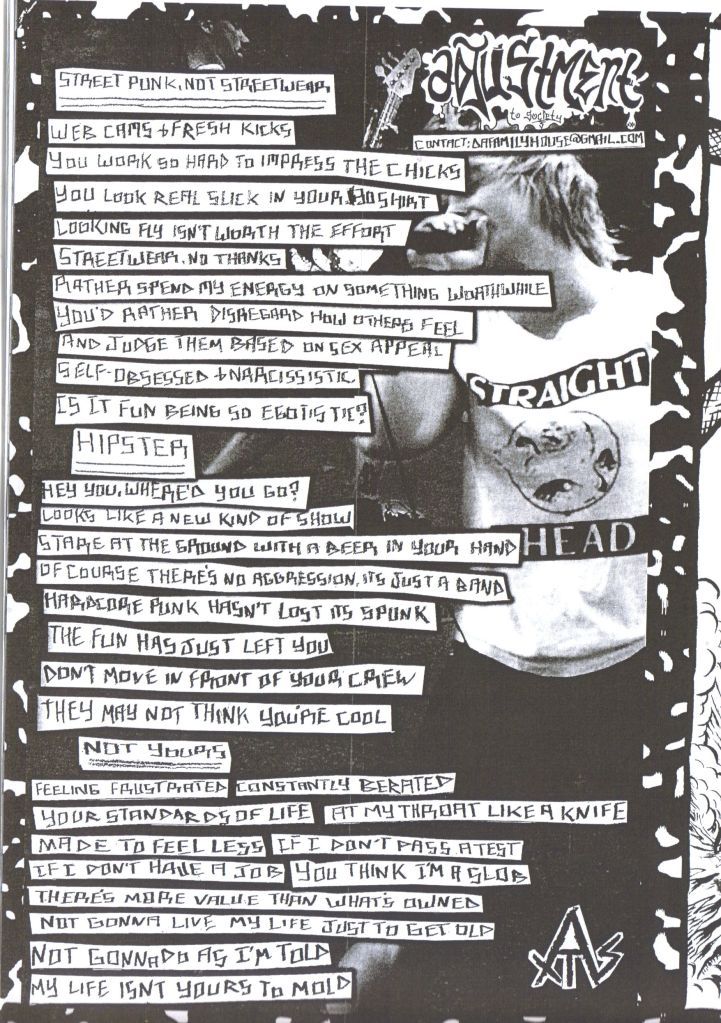 STREET PUNK, NOT STREETWEAR
ADJUSTMENT
to Society
CONTACT: DAFAMILYHOUSE@GMAIL.COM
WEB CAMS + FRESH KICKS
YOU WORK SO HARD TO IMPRESS THE CHICKS
YOU LOOK REAL SLICK IN YOUR $30 SHIRT
LOOKING FLY ISN'T WORTH THE EFFORT
STREETWEAR, NO THANKS
RATHER SPEND MY ENERGY ON SOMETHING WORTHWHILE
YOU'D RATHER DISREGARD HOW OTHERS FEEL
AND JUDGE THEM BASED ON SEX APPEAL
SELF-OBSESSED + NARCISSISTIC
IS IT FUN BEING SO EGOTISTIC?
STRAIGHT
HEAD
HIPSTER
HEY YOU, WHERE'D YOU GO?
LOOKS LIKE A NEW KIND OF SHOW
STARE AT THE GROUND WITH A BEER IN YOUR HAND
OF COURSE THERE'S NO AGGRESSION, ITS JUST A BAND
HARDCORE PUNK HASN'T LOST ITS SPUNK
THE FUN HAS JUST LEFT YOU
DON'T MOVE IN FRONT OF YOUR CREW
THEY MAY NOT THINK YOU'RE COOL
NOT YOURS
FEELING FRUSTRATED CONSTANTLY BERATED
YOUR STANDARDS OF LIFE AT MY THROAT LIKE A KNIFE
MADE TO FEEL LESS IF I DON'T PASS A TEST
IF I DON'T HAVE A JOB YOU THINK I'M A SLOB
THERE'S MORE VALUE THAN WHAT'S OWNED
NOT GONNA LIVE MY LIFE JUST TO GET OLD
NOT GONNA DO AS I'M TOLD
MY LIFE ISNT YOURS TO MOLD